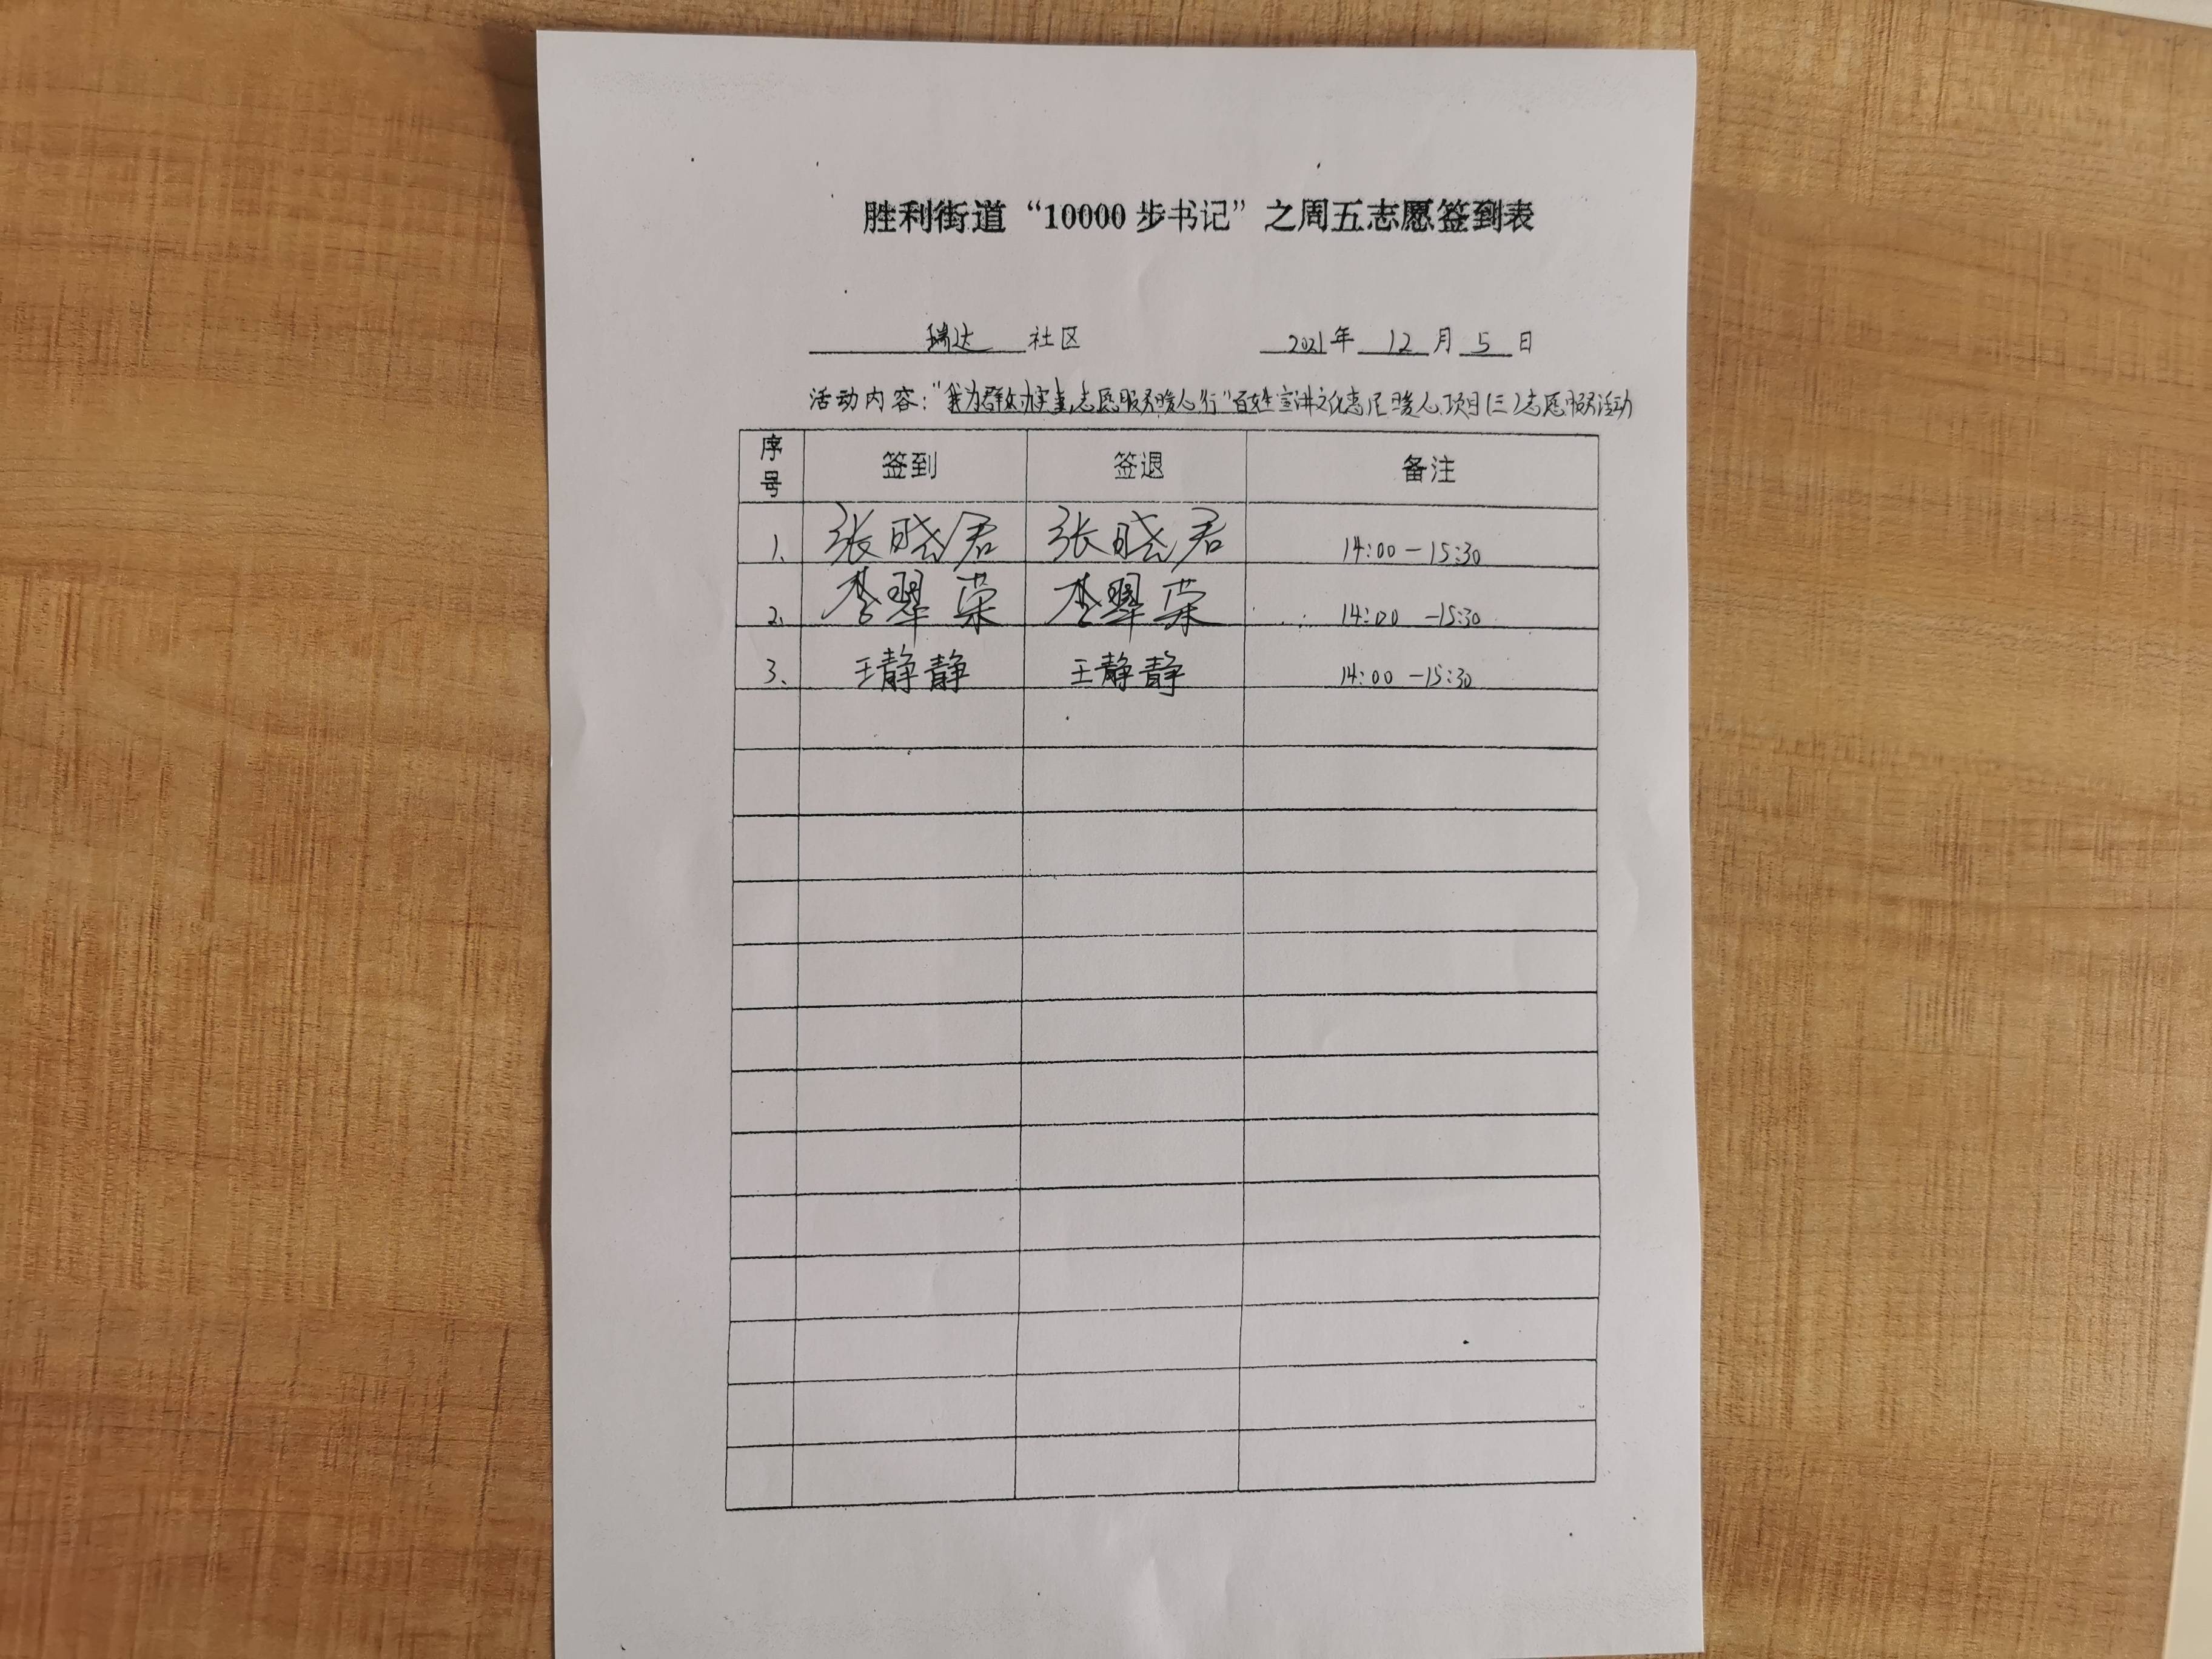 胜利街道“10000步书记”之周五志愿签到表
瑞达 社区 2021年 12月 5日
活动内容:“我为群众办实事,志愿服务暖人心行”百姓宣讲文化惠民暖人心项目(三)志愿服务活动
序号 签到 签退 备注
1、 张晓君 张晓君 14:00-15:30
2、 李翠荣 李翠荣 14:00-15:30
3、 王静静 王静静 14:00-15:30